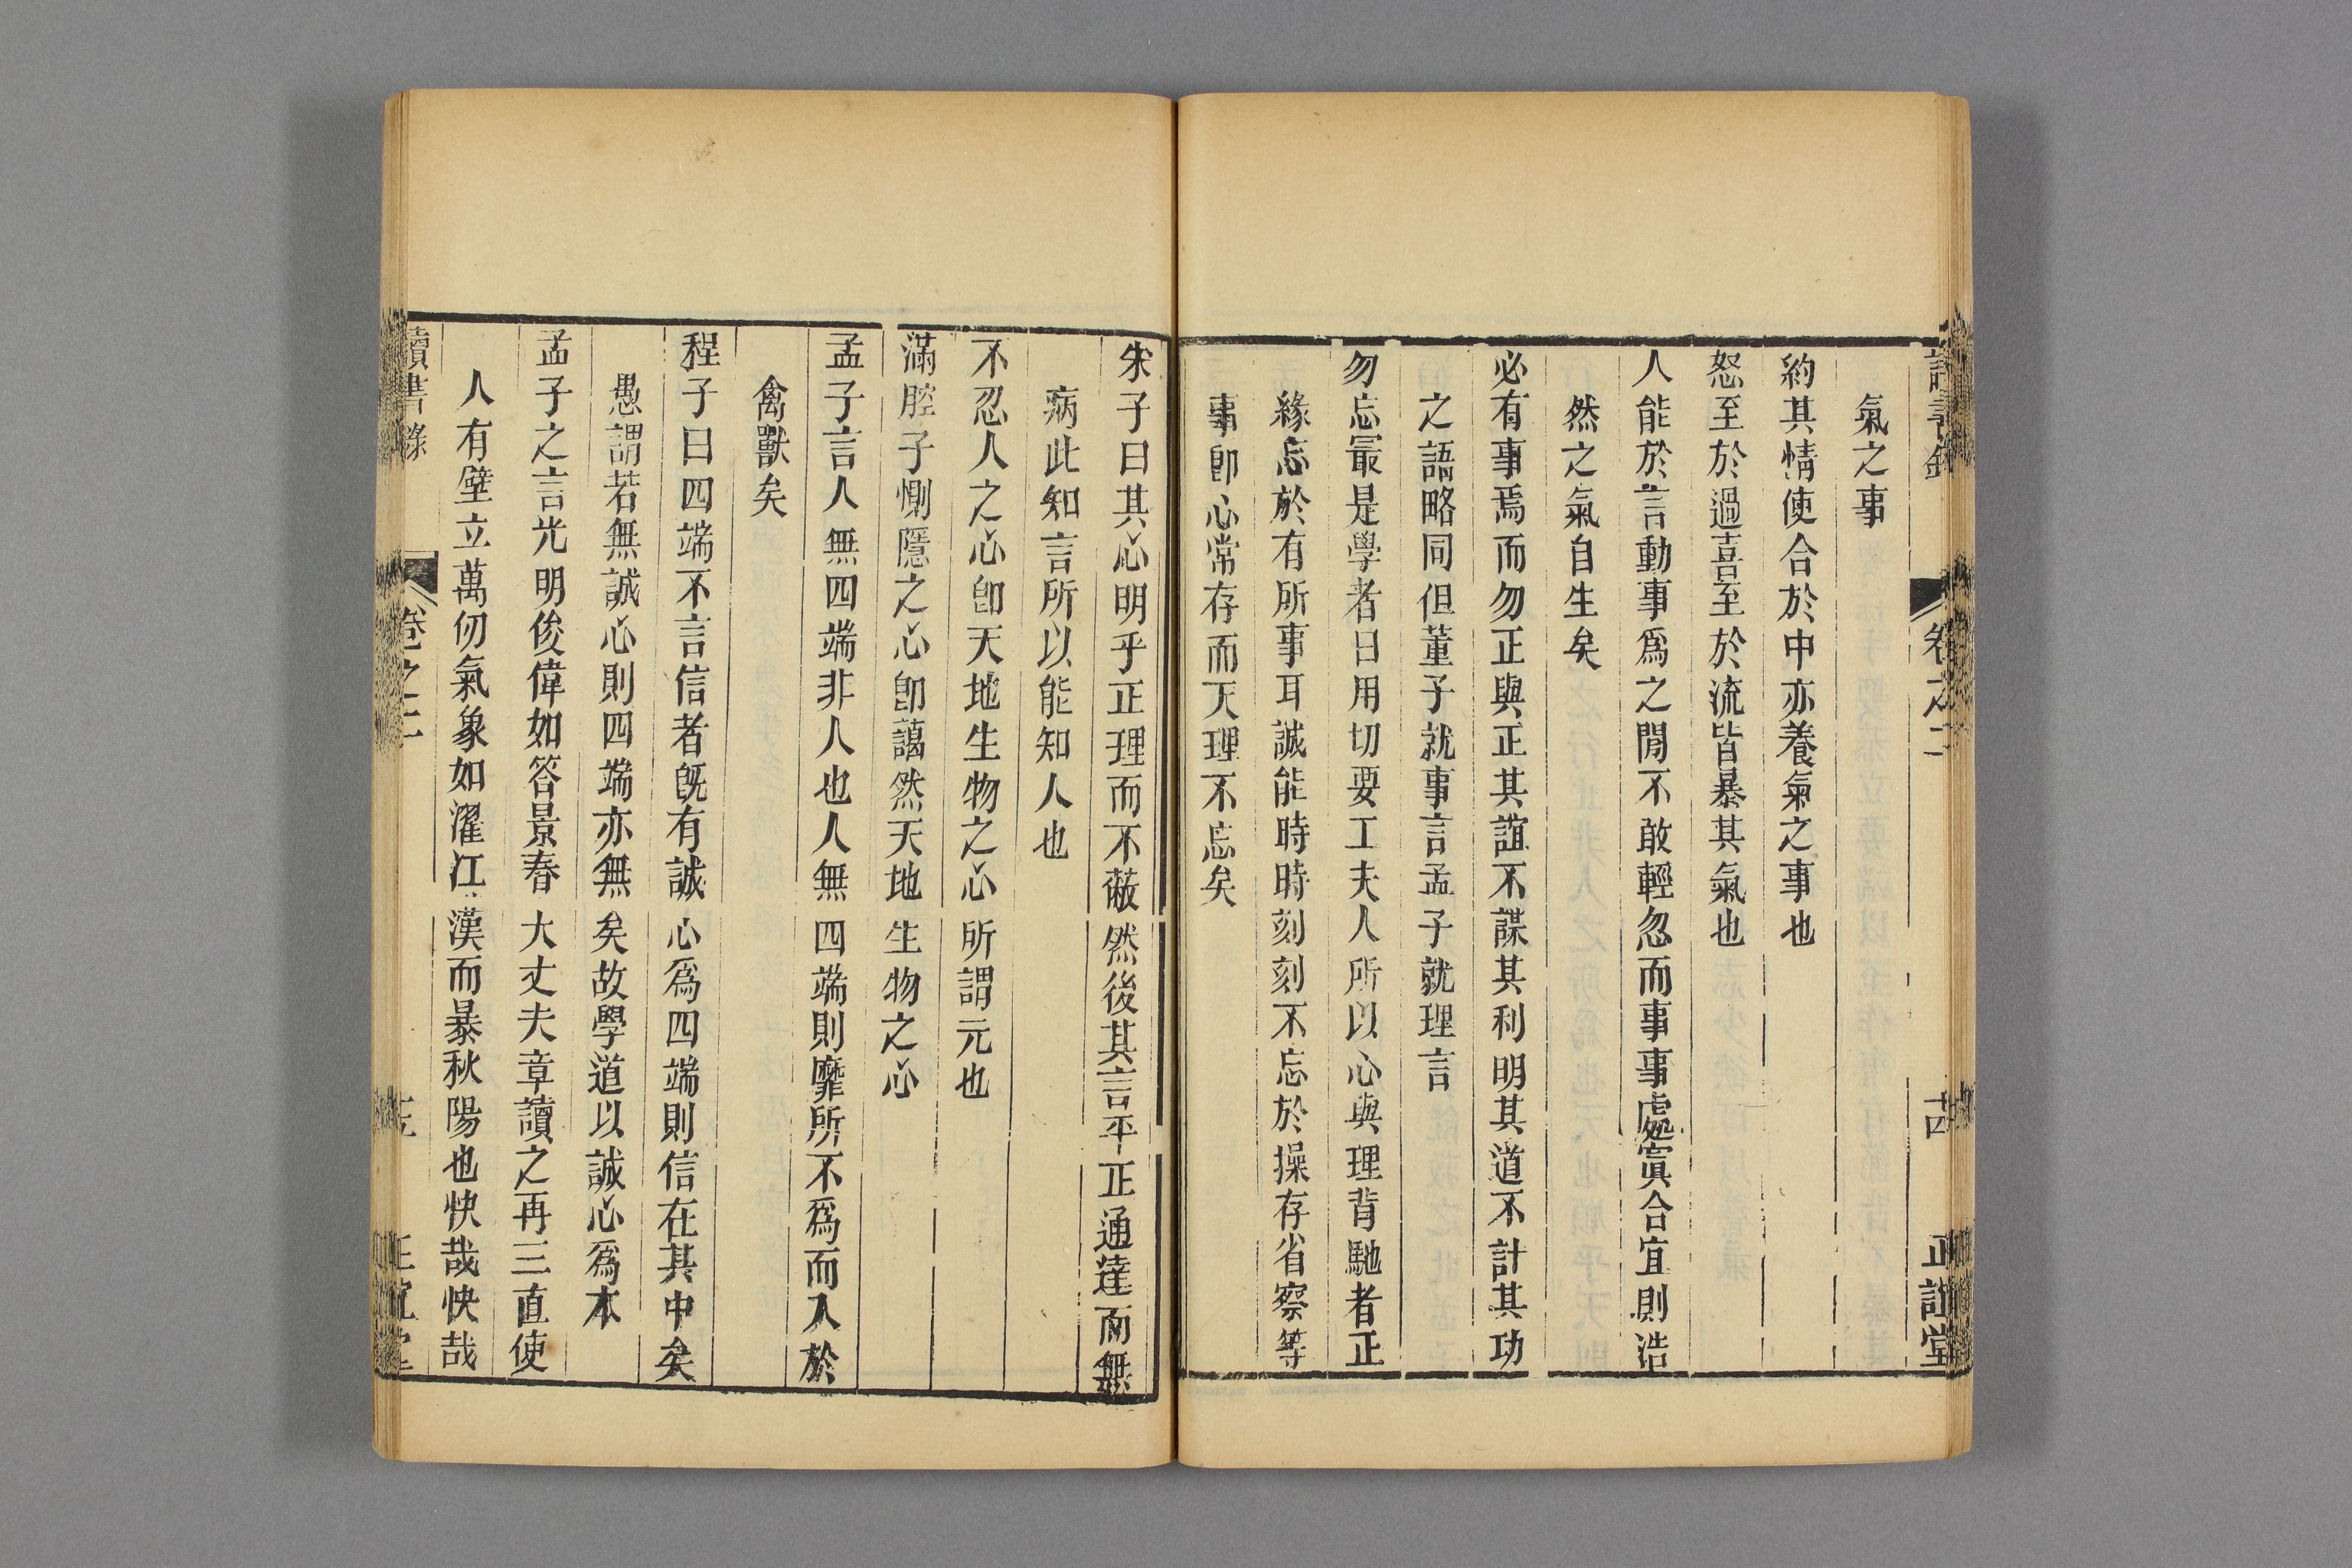 讀書錄 卷之二 十四 正誼堂
氣之事
約其情使合於中亦養氣之事也
怒至於過喜至於流皆暴其氣也
人能於言動事爲之閒不敢輕忽而事事處寘合宜則浩
然之氣自生矣
必有事焉而勿正與正其誼不謀其利明其道不計其功
之語略同但董子就事言孟子就理言
勿忘最是學者日用切要工夫人所以心與理背馳者正
緣忘於有所事耳誠能時時刻刻不忘於操存省察等
事卽心常存而天理不忘矣
朱子曰其心明乎正理而不蔽然後其言平正通達而無
病此知言所以能知人也
不忍人之心卽天地生物之心所謂元也
滿腔子惻隱之心卽藹然天地生物之心
孟子言人無四端非人也人無四端則靡所不爲而入於
禽獸矣
程子曰四端不言信者旣有誠心爲四端則信在其中矣
愚謂若無誠心則四端亦無矣故學道以誠心爲本
孟子之言光明俊偉如答景春大丈夫章讀之再三直使
人有壁立萬仞氣象如濯江漢而暴秋陽也快哉快哉
讀書錄 卷之二 正誼堂